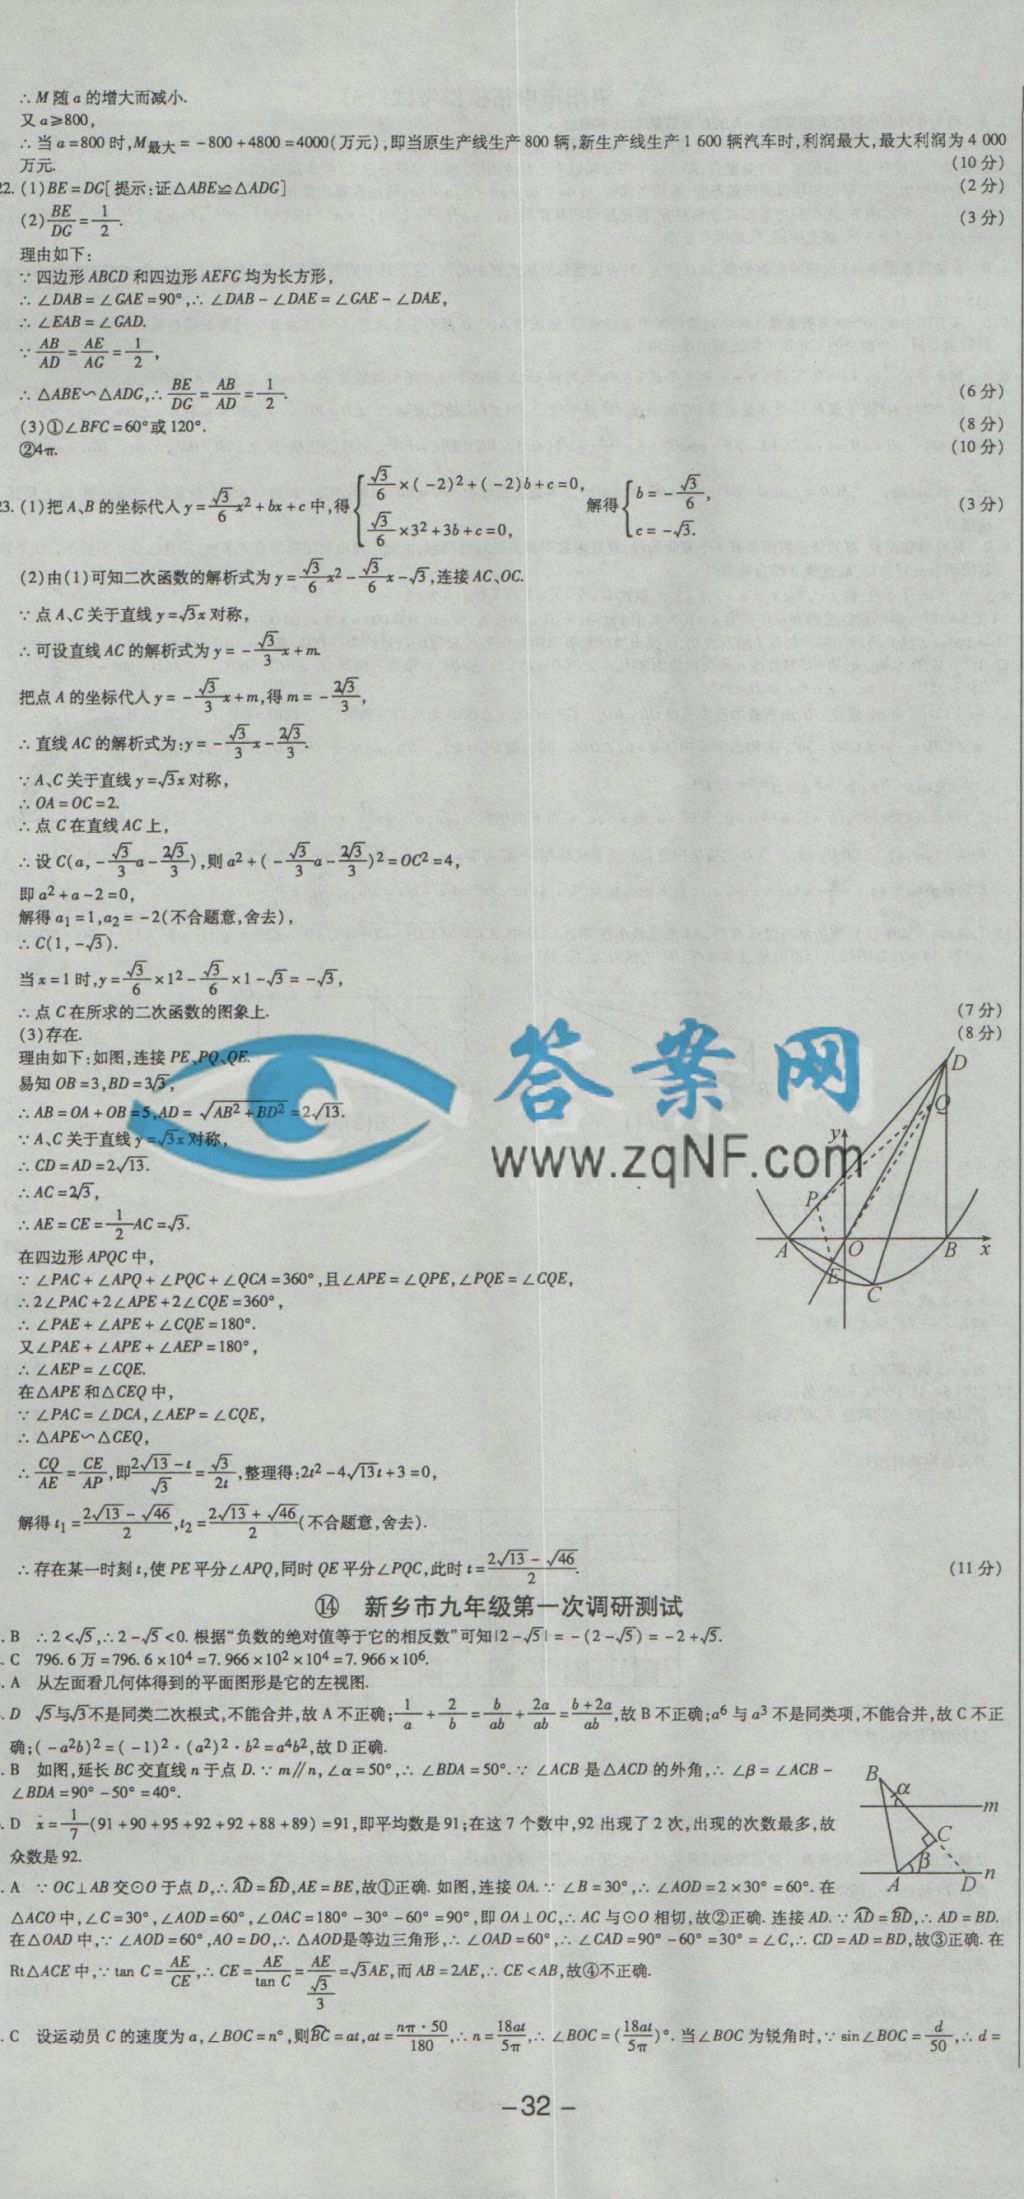 ∴ M 随 a 的增大而减小.
又 a≥800,
∴ 当 a=800 时,M最大= -800+4800=4000(万元),即当原生产线生产 800 辆,新生产线生产 1 600 辆汽车时,利润最大,最大利润为 4 000
万元. (10 分)
22. (1)BE=DG[提示:证△ABE≌△ADG] (2 分)
(2)BE/DG=1/2. (3 分)
理由如下:
∵ 四边形 ABCD 和四边形 AEFG 均为长方形,
∴ ∠DAB=∠GAE=90°,∴ ∠DAB-∠DAE=∠GAE-∠DAE,
∴ ∠EAB=∠GAD.
∵ AB/AD=AE/AG=1/2,
∴ △ABE∽△ADG,∴ BE/DG=AB/AD=1/2. (6 分)
(3)①∠BFC=60°或 120°. (8 分)
②4π. (10 分)
23. (1)把 A、B 的坐标代入 y=√3/6x²+bx+c 中,得{√3/6×(-2)²+(-2)b+c=0, √3/6×3²+3b+c=0, 解得{b=-√3/6, c=-√3. (3 分)
(2)由(1)可知二次函数的解析式为 y=√3/6x²-√3/6x-√3,连接 AC、OC.
∵ 点 A、C 关于直线 y=√3x 对称,
∴ 可设直线 AC 的解析式为 y=-√3/3x+m.
把点 A 的坐标代入 y=-√3/3x+m,得 m=-2√3/3,
∴ 直线 AC 的解析式为:y=-√3/3x-2√3/3.
∵ A、C 关于直线 y=√3x 对称,
∴ OA=OC=2.
∴ 点 C 在直线 AC 上,
∴ 设 C(a,-√3/3a-2√3/3),则 a²+(-√3/3a-2√3/3)²=OC²=4,
即 a²+a-2=0,
解得 a₁=1,a₂=-2(不合题意,舍去),
∴ C(1,-√3).
当 x=1 时,y=√3/6×1²-√3/6×1-√3=-√3,
∴ 点 C 在所求的二次函数的图象上. (7 分)
(3)存在. (8 分)
理由如下:如图,连接 PE、PQ、QE.
易知 OB=3,BD=3√3,
∴ AB=OA+OB=5,AD=√(AB²+BD²)=2√13.
∵ A、C 关于直线 y=√3x 对称,
∴ CD=AD=2√13.
∴ AC=2√3,
∴ AE=CE=1/2AC=√3.
在四边形 APQC 中,
∵ ∠PAC+∠APQ+∠PQC+∠QCA=360°,且∠APE=∠QPE,∠PQE=∠CQE,
∴ 2∠PAC+2∠APE+2∠CQE=360°,
∴ ∠PAE+∠APE+∠CQE=180°.
又∠PAE+∠APE+∠AEP=180°,
∴ ∠AEP=∠CQE.
在△APE 和△CEQ 中,
∵ ∠PAC=∠DCA,∠AEP=∠CQE,
∴ △APE∽△CEQ,
∴ CQ/AE=CE/AP,即(2√13-t)/√3=√3/2t,整理得:2t²-4√13t+3=0,
解得 t₁=(2√13-√46)/2,t₂=(2√13+√46)/2(不合题意,舍去).
∴ 存在某一时刻 t,使 PE 平分∠APQ,同时 QE 平分∠PQC,此时 t=(2√13-√46)/2. (11 分)
答案网
www.zqNF.com
D
Q
y
P
A
O
B
x
E
C
⑭ 新乡市九年级第一次调研测试
. B ∴ 2<√5,∴ 2-√5<0. 根据“负数的绝对值等于它的相反数”可知|2-√5|=-(2-√5)=-2+√5.
. C 796.6 万=796.6×10⁴=7.966×10²×10⁴=7.966×10⁶.
. A 从左面看几何体得到的平面图形是它的左视图.
. D √5与√3不是同类二次根式,不能合并,故 A 不正确;1/a+2/b=b/ab+2a/ab=(b+2a)/ab,故 B 不正确;a⁶ 与 a³ 不是同类项,不能合并,故 C 不正
确;(-a²b)²=(-1)²·(a²)²·b²=a⁴b²,故 D 正确.
. B 如图,延长 BC 交直线 n 于点 D. ∵ m∥n,∠α=50°,∴ ∠BDA=50°. ∵ ∠ACB 是△ACD 的外角,∴ ∠β=∠ACB-
∠BDA=90°-50°=40°.
. D x̄=1/7(91+90+95+92+92+88+89)=91,即平均数是 91;在这 7 个数中,92 出现了 2 次,出现的次数最多,故
众数是 92.
B
α
m
C
β
A
D
n
. A ∵ OC⊥AB 交⊙O 于点 D,∴ AD⌒=BD⌒,AE=BE,故①正确. 如图,连接 OA. ∵ ∠B=30°,∴ ∠AOD=2×30°=60°. 在
△ACO 中,∠C=30°,∠AOD=60°,∠OAC=180°-30°-60°=90°,即 OA⊥OC,∴ AC 与⊙O 相切,故②正确. 连接 AD. ∵ AD⌒=BD⌒,∴ AD=BD.
在△OAD 中,∵ ∠AOD=60°,AO=DO,∴ △AOD是等边三角形,∴ ∠OAD=60°,∴ ∠CAD=90°-60°=30°=∠C,∴ CD=AD=BD,故③正确. 在
Rt△ACE 中,∵ tan C=AE/CE,∴ CE=AE/tan C=AE/(√3/3)=√3AE,而 AB=2AE,∴ CE<AB,故④不正确.
. C 设运动员 C 的速度为 a,∠BOC=n°,则BC⌒=at,at=nπ·50/180,∴ n=18at/5π,∴ ∠BOC=(18at/5π)°. 当∠BOC 为锐角时,∵ sin∠BOC=d/50,∴ d=
-32-